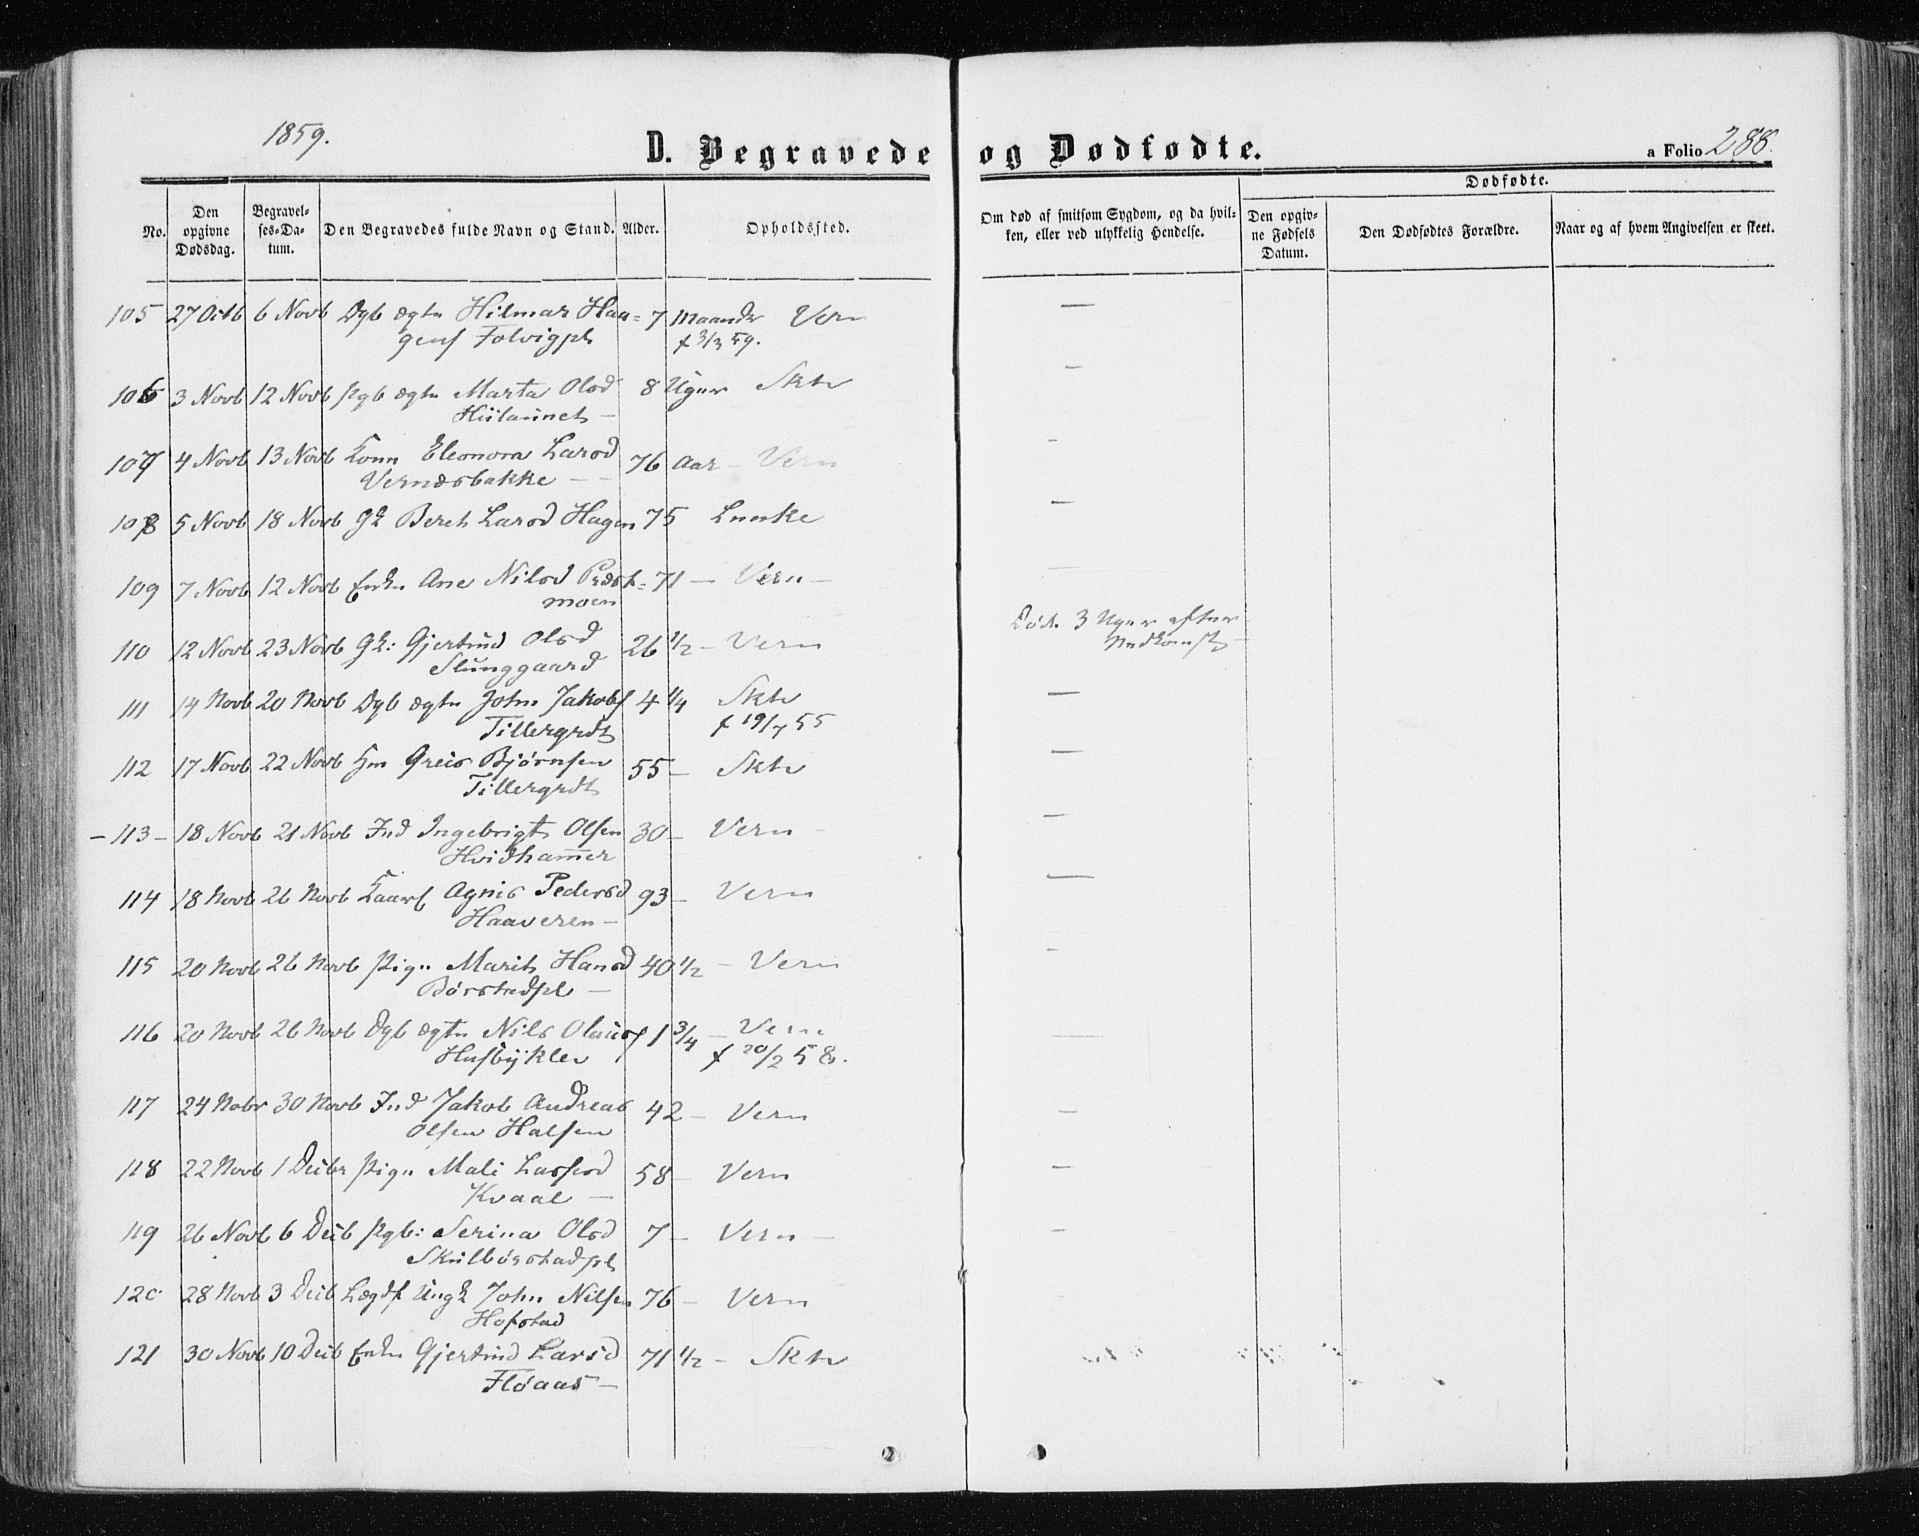 1859.
D. Begravede og Dødfødte.
a Folio 288.
No.
Den opgivne Dødsdag.
Begravelses-Datum.
Den Begravedes fulde Navn og Stand.
Alder.
Opholdssted.
Om død af smitsom Sygdom, og da hvilken, eller ved ulykkelig Hendelse.
Dødfødte.
Den opgivne Fødsels Datum.
Den Dødfødtes Forældre.
Naar og af hvem Angivelsen er skeet.
105 27 Octb 6 Novb Dgb ægtn Hilmar Haa= 7 Maander Vern —
gens Folvigpl f 3/3 59.
106 3 Novb 12 Novb Pgb ægtn Marta Olsd 8 Uger Sktv —
Hiilaunet —
107 4 Novb 13 Novb Konn Eleonora Larsd 76 Aar — Vern —
Vernæsbakke — —
108 5 Novb 18 Novb Gk Bereth Larsd Hagen 75 Laanke —
109 7 Novb 12 Novb Enkn Ane Nilsd Præst= 71 — Vern — —
moen
110 12 Novb 23 Novb Gk: Gjertrud Olsd 26 1/2 — Vern Død. 3 Uger efter
Slunggaard Nedkomst —
111 14 Novb 20 Novb Dgb ægtn John Jakobs 4 1/4 Sktv —
Tillergrdt f 19/7 55
112 17 Novb 22 Novb Hm Greis Bjørnsen 55 — Sktv —
Tillergrdt
— 113 — 18 Novb 21 Novb Ind Ingebrigt Olsen 30 — Vern — —
Hvidham̄er
114 18 Novb 26 Novb Kaarf Agnis Pedersd 93 — Vern —
Haaveren —
115 20 Novb 26 Novb Pign Marit Hansd 40 1/2 — Vern —
Børstadpl —
116 20 Novb 26 Novb Dgb ægtn Nils Olaus 1 3/4 — Vern —
Husbyklev f 20/2 58.
117 24 Nobr 30 Novb Ind Jakob Andreas 42 — Vern —
Olsen Halsen
118 22 Novb 1 Decbr Pign Mali Lassesd 58 — Vern —
Kvaal —
119 26 Novb 6 Decb Pgb: Serina Olsd 7 — Vern — —
Skulbørstadpl
120 28 Novb 3 Decb Lægdf Ungk John Nilsen 76 — Vern
Hofstad
121 30 Novb 10 Decb Enkn Gjertrud Larsd 71 1/2 — Sktv
Floaas —